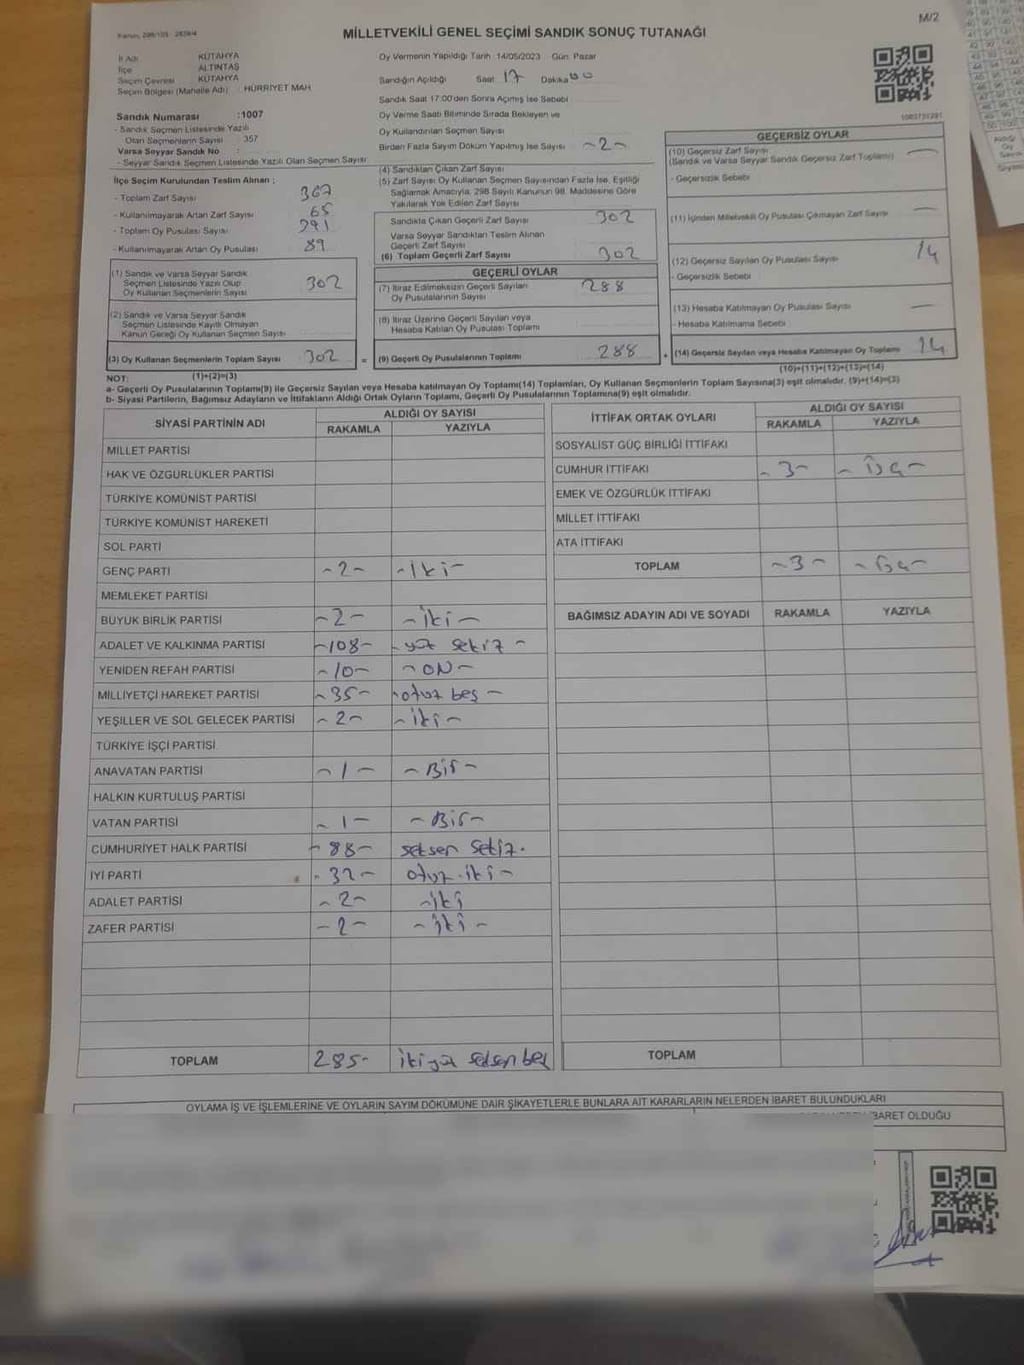 M/2
MİLLETVEKİLİ GENEL SEÇİMİ SANDIK SONUÇ TUTANAĞI
İl Adı : KÜTAHYA
İlçe : ALTINTAŞ
Seçim Çevresi : KÜTAHYA
Seçim Bölgesi (Mahalle Adı) : HÜRRİYET MAH
Oy Vermenin Yapıldığı Tarih :14/05/2023 Gün: Pazar
Sandığın Açıldığı Saat 17 Dakika 00
Sandık Saat 17:00'den Sonra Açımış İse Sebebi
Oy Verme Saati Bitiminde Sırada Bekleyen ve
Oy Kullandırılan Seçmen Sayısı
Birden Fazla Sayım Döküm Yapılmış İse Sayısı ~2~
Sandık Numarası :1007
- Sandık Seçmen Listesinde Yazılı
Olan Seçmenlerin Sayısı : 357
Varsa Seyyar Sandık No :
- Seyyar Sandık Seçmen Listesinde Yazılı Olan Seçmen Sayısı:
İlçe Seçim Kurulundan Teslim Alınan ;
- Toplam Zarf Sayısı 367
- Kullanılmayarak Artan Zarf Sayısı 65
- Toplam Oy Pusulası Sayısı
- Kullanılmayarak Artan Oy Pusulası 89
(1) Sandık ve Varsa Seyyar Sandık
Seçmen Listesinde Yazılı Olup
Oy Kullanan Seçmenlerin Sayısı 302
(2) Sandık ve Varsa Seyyar Sandık
Seçmen Listesinde Kayıtlı Olmayan
Kanun Gereği Oy Kullanan Seçmen Sayısı
(3) Oy Kullanan Seçmenlerin Toplam Sayısı 302
(1)+(2)=(3)
(4) Sandıktan Çıkan Zarf Sayısı
(5) Zarf Sayısı Oy Kullanan Seçmen Sayısından Fazla İse, Eşitliği
Sağlamak Amacıyla, 298 Sayılı Kanunun 98. Maddesine Göre
Yakılarak Yok Edilen Zarf Sayısı
Sandıkta Çıkan Geçerli Zarf Sayısı 302
Varsa Seyyar Sandıktan Teslim Alınan
Geçerli Zarf Sayısı
(6) Toplam Geçerli Zarf Sayısı 302
GEÇERLİ OYLAR
(7) İtiraz Edilmeksizin Geçerli Sayılan
Oy Pusulalarının Sayısı 288
(8) İtiraz Üzerine Geçerli Sayılan veya
Hesaba Katılan Oy Pusulası Toplamı
= (9) Geçerli Oy Pusulalarının Toplamı 288
GEÇERSİZ OYLAR
(10) Geçersiz Zarf Sayısı
(Sandık ve Varsa Seyyar Sandık Geçersiz Zarf Toplamı)
- Geçersizlik Sebebi
(11) İçinden Milletvekili Oy Pusulası Çıkmayan Zarf Sayısı
(12) Geçersiz Sayılan Oy Pusulası Sayısı 14
- Geçersizlik Sebebi
(13) Hesaba Katılmayan Oy Pusulası Sayısı
- Hesaba Katılmama Sebebi
+ (14) Geçersiz Sayılan veya Hesaba Katılmayan Oy Toplamı 14
(10)+(11)+(12)+(13)=(14)
NOT:
a- Geçerli Oy Pusulalarının Toplamı(9) ile Geçersiz Sayılan veya Hesaba katılmayan Oy Toplamı(14) Toplamları, Oy Kullanan Seçmenlerin Toplam Sayısına(3) eşit olmalıdır. (9)+(14)=(3)
b- Siyasi Partilerin, Bağımsız Adayların ve İttifakların Aldığı Ortak Oyların Toplamı, Geçerli Oy Pusulalarının Toplamına(9) eşit olmalıdır.
SİYASİ PARTİNİN ADI ALDIĞI OY SAYISI
RAKAMLA YAZIYLA
MİLLET PARTİSİ
HAK VE ÖZGÜRLÜKLER PARTİSİ
TÜRKİYE KOMÜNİST PARTİSİ
TÜRKİYE KOMÜNİST HAREKETİ
SOL PARTİ
GENÇ PARTİ ~2~ ~iki~
MEMLEKET PARTİSİ
BÜYÜK BİRLİK PARTİSİ ~2~ ~iki~
ADALET VE KALKINMA PARTİSİ ~108~ ~yüz sekiz~
YENİDEN REFAH PARTİSİ ~10~ ~ON~
MİLLİYETÇİ HAREKET PARTİSİ ~35~ ~otuz beş~
YEŞİLLER VE SOL GELECEK PARTİSİ ~2~ ~iki~
TÜRKİYE İŞÇİ PARTİSİ
ANAVATAN PARTİSİ ~1~ ~Bir~
HALKIN KURTULUŞ PARTİSİ
VATAN PARTİSİ ~1~ ~Bir~
CUMHURİYET HALK PARTİSİ ~88~ seksen sekiz.
İYİ PARTİ ~32~ otuz iki~
ADALET PARTİSİ ~2~ ~iki
ZAFER PARTİSİ ~2~ ~iki~
TOPLAM 285~ ikiyüz seksen beş
İTTİFAK ORTAK OYLARI ALDIĞI OY SAYISI
RAKAMLA YAZIYLA
SOSYALİST GÜÇ BİRLİĞİ İTTİFAKI
CUMHUR İTTİFAKI ~3~ ~Üç~
EMEK VE ÖZGÜRLÜK İTTİFAKI
MİLLET İTTİFAKI
ATA İTTİFAKI
TOPLAM ~3~ ~Üç~
BAĞIMSIZ ADAYIN ADI VE SOYADI RAKAMLA YAZIYLA
TOPLAM
OYLAMA İŞ VE İŞLEMLERİNE VE OYLARIN SAYIM DÖKÜMÜNE DAİR ŞİKAYETLERLE BUNLARA AİT KARARLARIN NELERDEN İBARET BULUNDUKLARI
BARET OLDUĞU